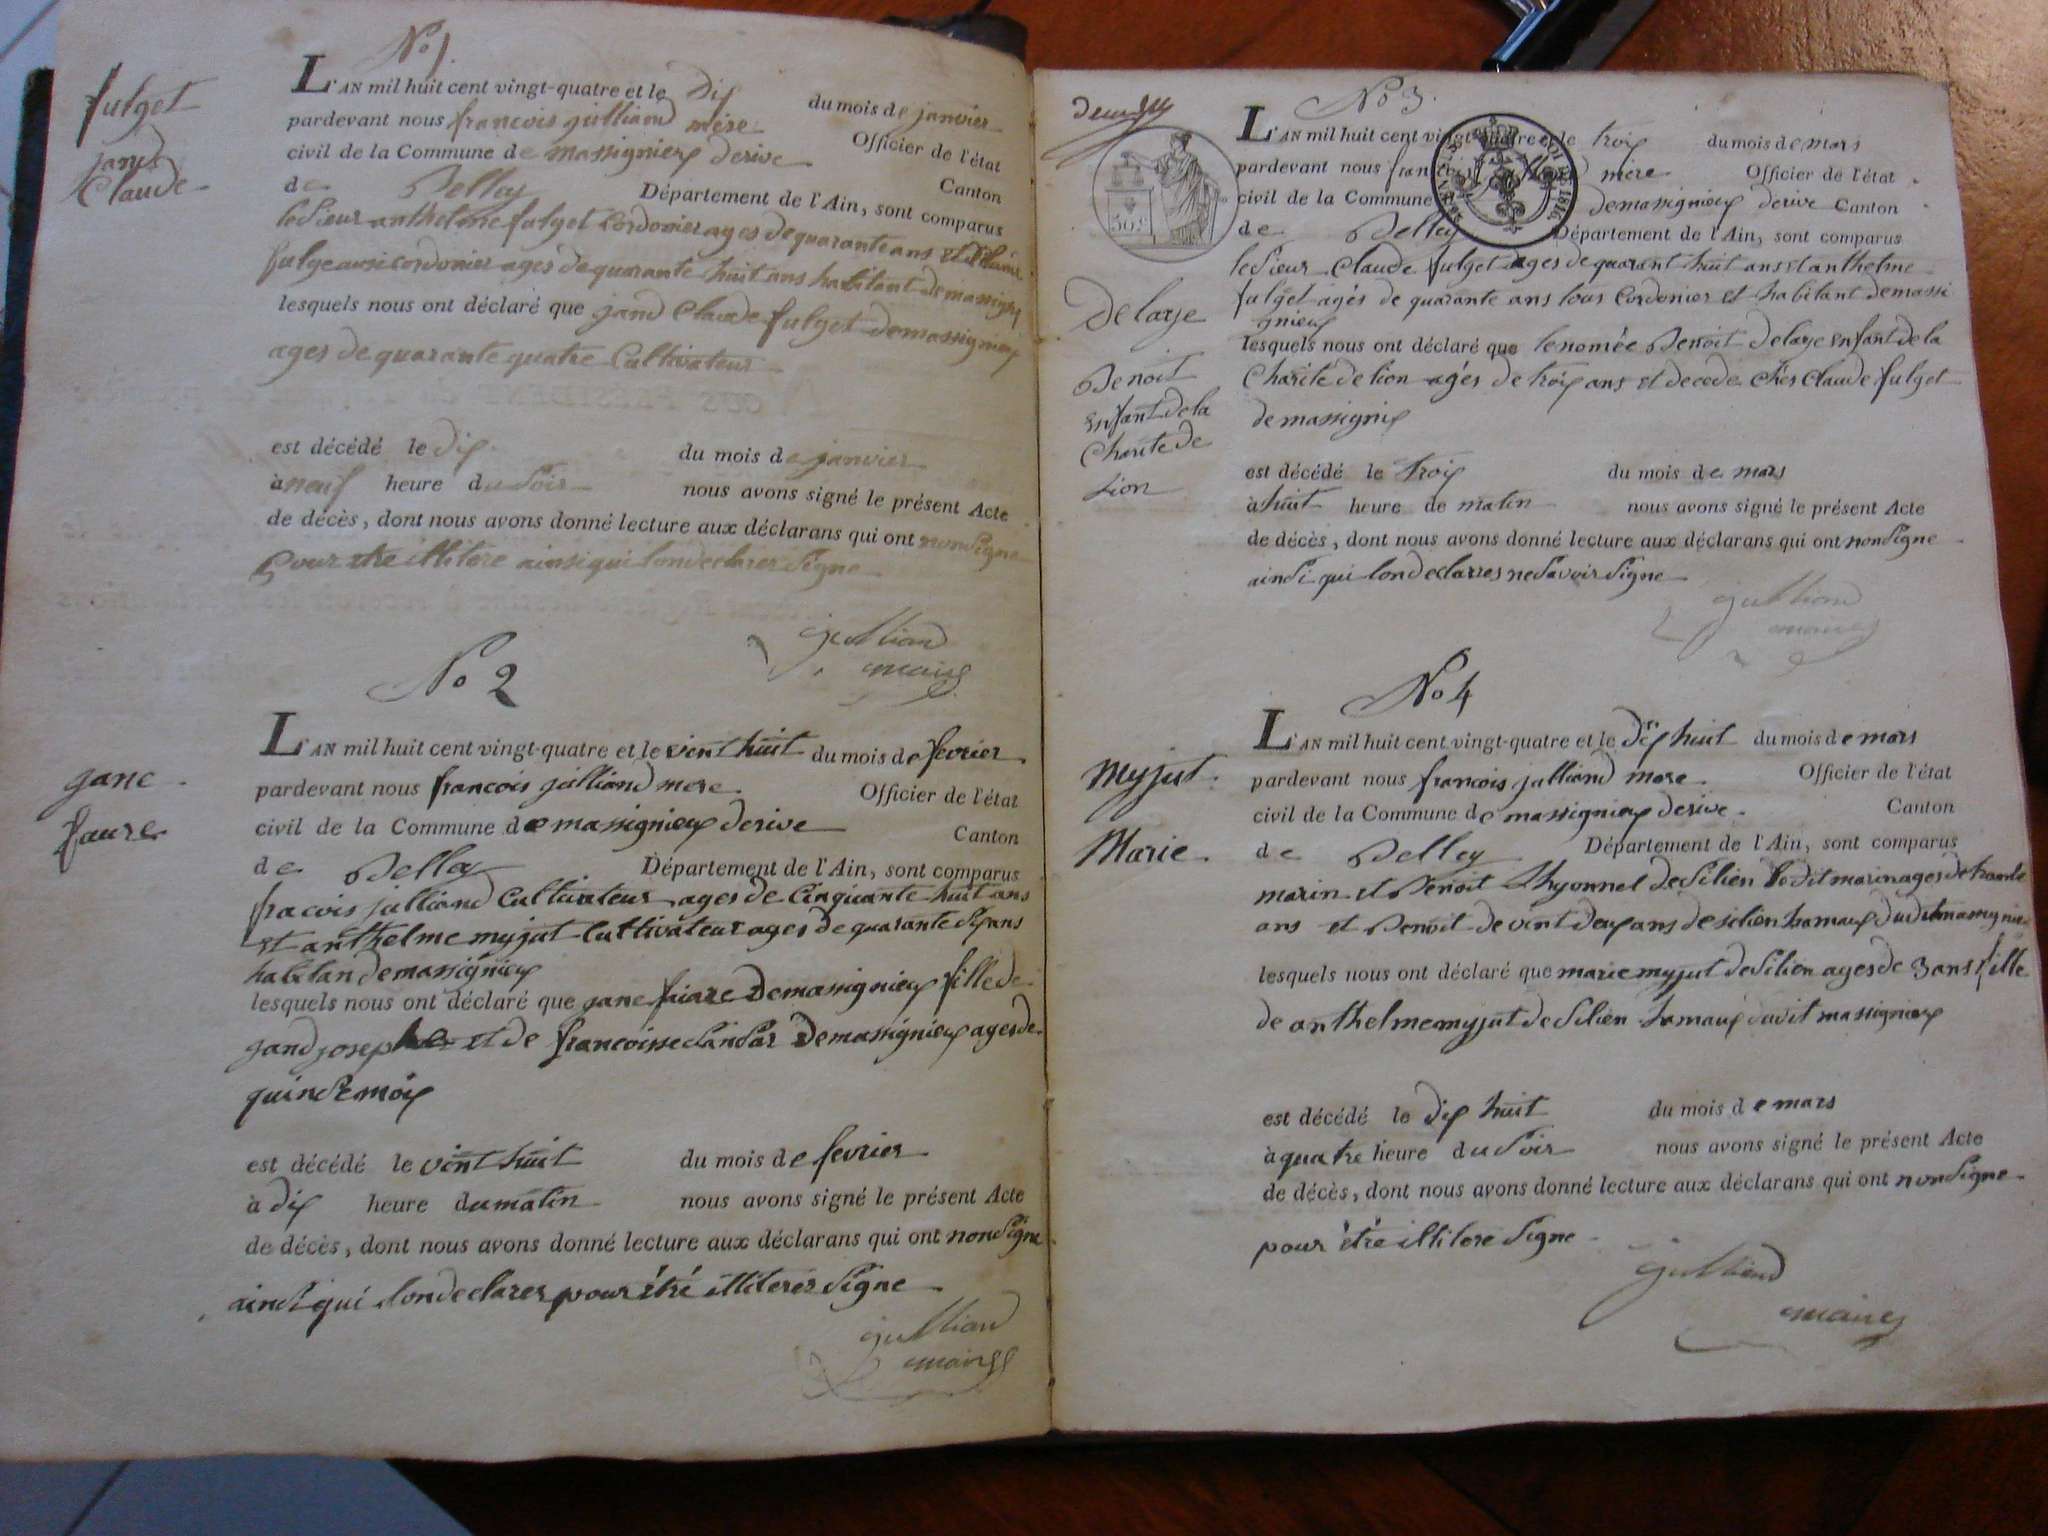 No 1
fulget
jand
Claude
L'AN mil huit cent vingt-quatre et le Dix du mois de janvier
pardevant nous francois julliand mère Officier de l'état
civil de la Commune de massignieux derive Canton
de Belley Département de l'Ain, sont comparus
le Sieur anthelme fulget Cordonier ages de quarante ans et
fulge aussi cordonier ages de quarante huit ans habitant de massignieux
lesquels nous ont déclaré que jand Claude fulget demassignieux
ages de quarante quatre Cultivateur
est décédé le dix du mois de janvier
à neuf heure du Soir nous avons signé le présent Acte
de décès, dont nous avons donné lecture aux déclarans qui ont non Signe
pour etre illitere ainsi qui lon declarer Signe
julliand
maire
No 2
jane
faure
L'AN mil huit cent vingt-quatre et le vient huit du mois de fevrier
pardevant nous francois julliand mere Officier de l'état
civil de la Commune de massignieux derive Canton
de Belley Département de l'Ain, sont comparus
fracois julliand Cultivateur ages de Cinquante huit ans
et anthelme myjut Cultivateur ages de quarante six ans
habitan demassignieux
lesquels nous ont déclaré que jane faure Demassignieux fille de
jand joseph et de francoisse Demassignieux ages de
quinse mois
est décédé le vint huit du mois de fevrier
à dix heure du matin nous avons signé le présent Acte
de décès, dont nous avons donné lecture aux déclarans qui ont non Signe
ainsi qui lon declarer pour étré illiterer Signe
julliand
maire
No 3
50 c
LOI DE 1816
Delarje
Benoit
enfant de la
Charite de
Lion
L'AN mil huit cent vingt-quatre et le trois du mois de mars
pardevant nous francois mère Officier de l'état
civil de la Commune demassignieux derive Canton
de Belley Département de l'Ain, sont comparus
le Sieur Claude fulget ages de quarant huit ans et anthelme
fulget agés de quarante ans tous Cordonier et habitant demassi
gnieux
lesquels nous ont déclaré que le nomée Benoit Delarje enfant de la
Charite de lion agés de trois ans et decede ches Claude fulget
de massignix
est décédé le trois du mois de mars
à huit heure de matin nous avons signé le présent Acte
de décès, dont nous avons donné lecture aux déclarans qui ont non Signe
ainsi qui lon declarres ne Savoir Signe
julliand
maire
No 4
Myjut
Marie
L'AN mil huit cent vingt-quatre et le dix huit du mois de mars
pardevant nous francois julliand mere Officier de l'état
civil de la Commune de massignieux derive Canton
de Belley Département de l'Ain, sont comparus
marin et Benoit thyonnet de Silien ledit marin ages de trante
ans et Benoit de vint deux ans de silien hamaux dudit massignieux
lesquels nous ont déclaré que marie myjut de Silien ages de 3 ans fille
de anthelme myjut de Silien hamaux dudit massignieux
est décédé le dix huit du mois de mars
à quatre heure du Soir nous avons signé le présent Acte
de décès, dont nous avons donné lecture aux déclarans qui ont non Signe
pour étré illitere Signe
julliand
maire